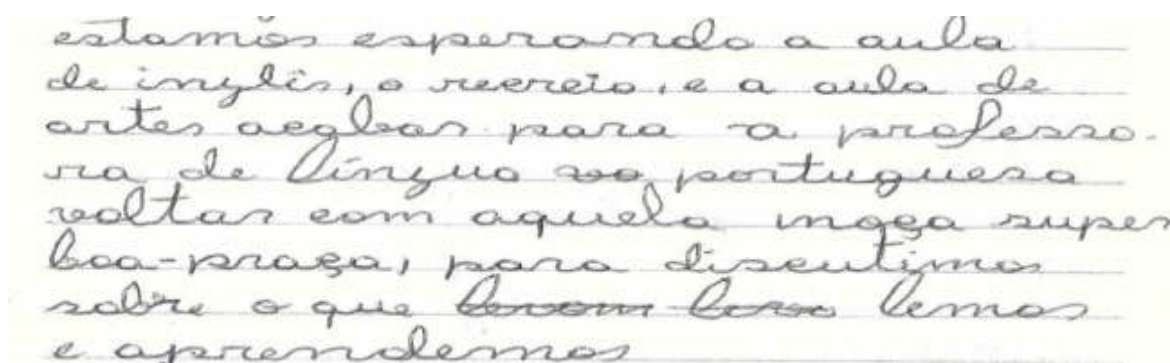 estamos esperando a aula
de inglês, o recreio, e a aula de
artes para a professo-
ra de língua portuguesa
voltar com aquela moça super
boa-praça, para discutimos
sobre o que lemos
e aprendemos